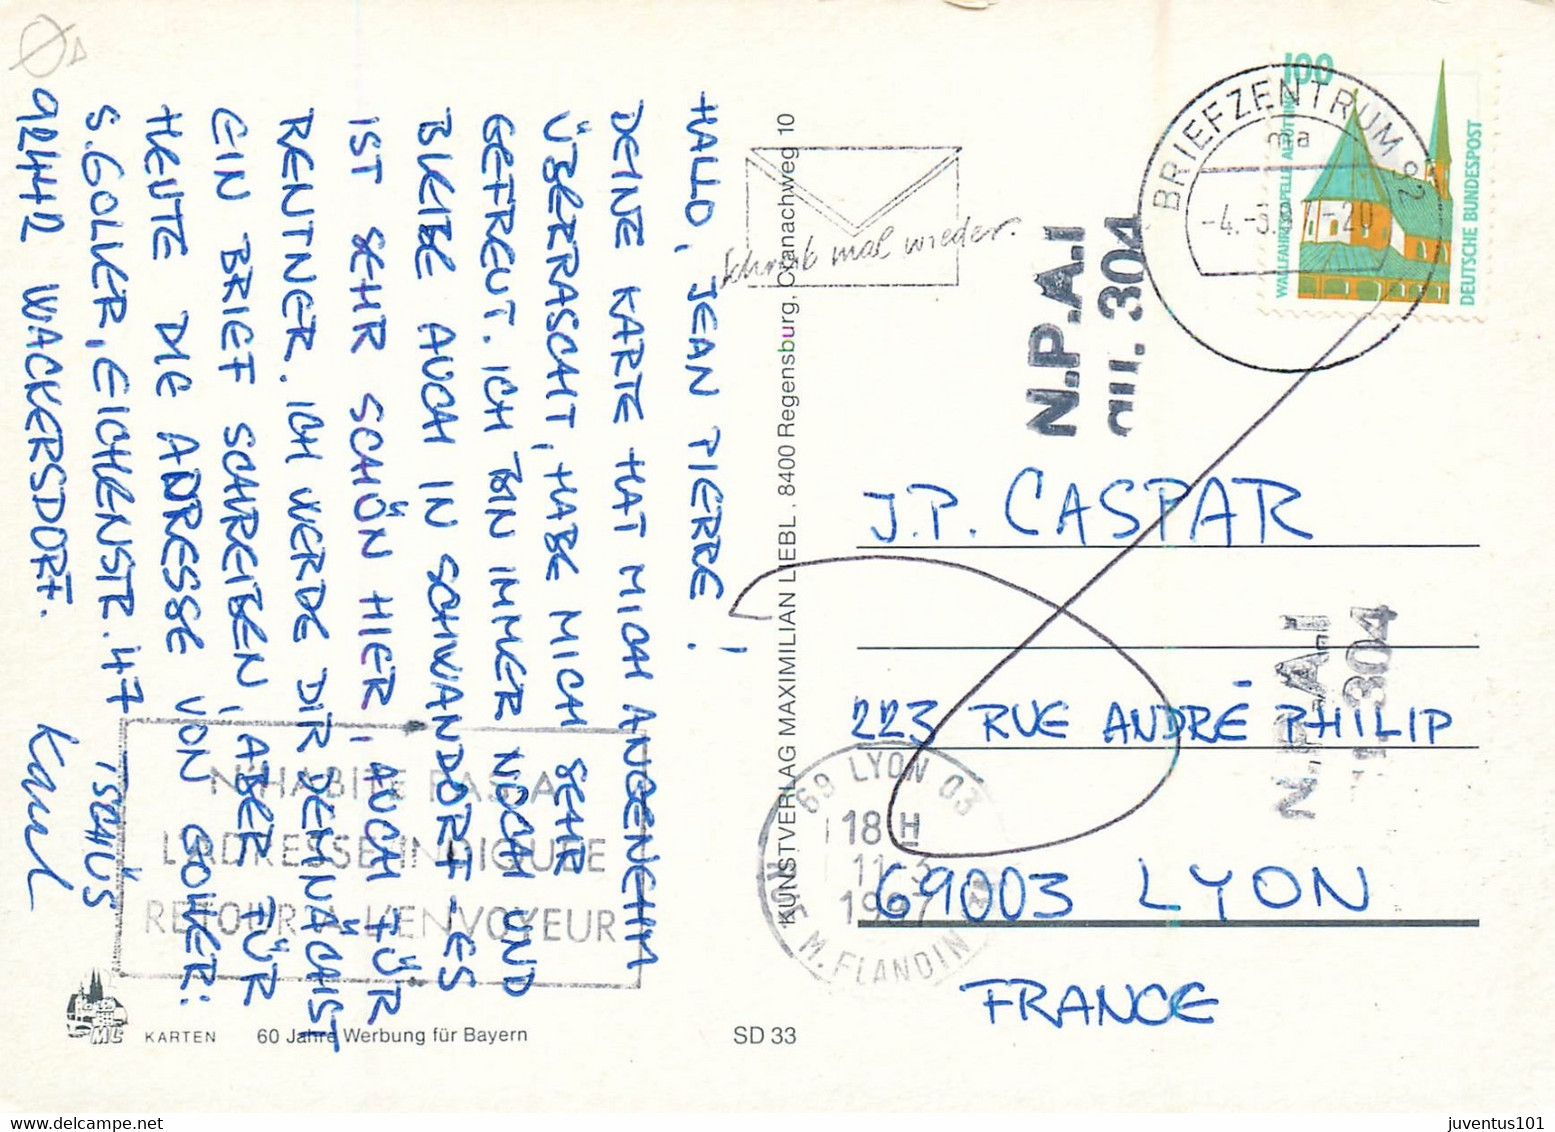 HALLO, JEAN PIERRE!
DEINE KARTE HAT MICH ANGENEHM
ÜBERRASCHT, HABE MICH SEHR
GEFREUT. ICH BIN IMMER NOCH UND
BLEIBE AUCH IN SCHWANDORF - ES
IST SEHR SCHÖN HIER, AUCH FÜR
RENTNER. ICH WERDE DIR DEMNÄCHST
EIN BRIEF SCHREIBEN, ABER FÜR
HEUTE DIE ADRESSE VON GOLLER:
S. GOLLER, EICHENSTR. 47
92442 WACKERSDORF.
TSCHÜS
Karl
N'HABITE PAS A
L'ADRESSE INDIQUÉE
RETOUR A L'ENVOYEUR
KARTEN
60 Jahre Werbung für Bayern
SD 33
KUNSTVERLAG MAXIMILIAN LIEBL, 8400 Regensburg, Cranachweg 10
Schreib mal wieder.
BRIEFZENTRUM 92
ma
100
WALLFAHRTSKAPELLE ALTÖTTING
DEUTSCHE BUNDESPOST
N.P.A.I
304
J.P. CASPAR
N.P.A.I
304
223 RUE ANDRÉ PHILIP
69 LYON 03
18 H
11-3
1997
RUE M. FLANDIN
69003 LYON
FRANCE
juventus101